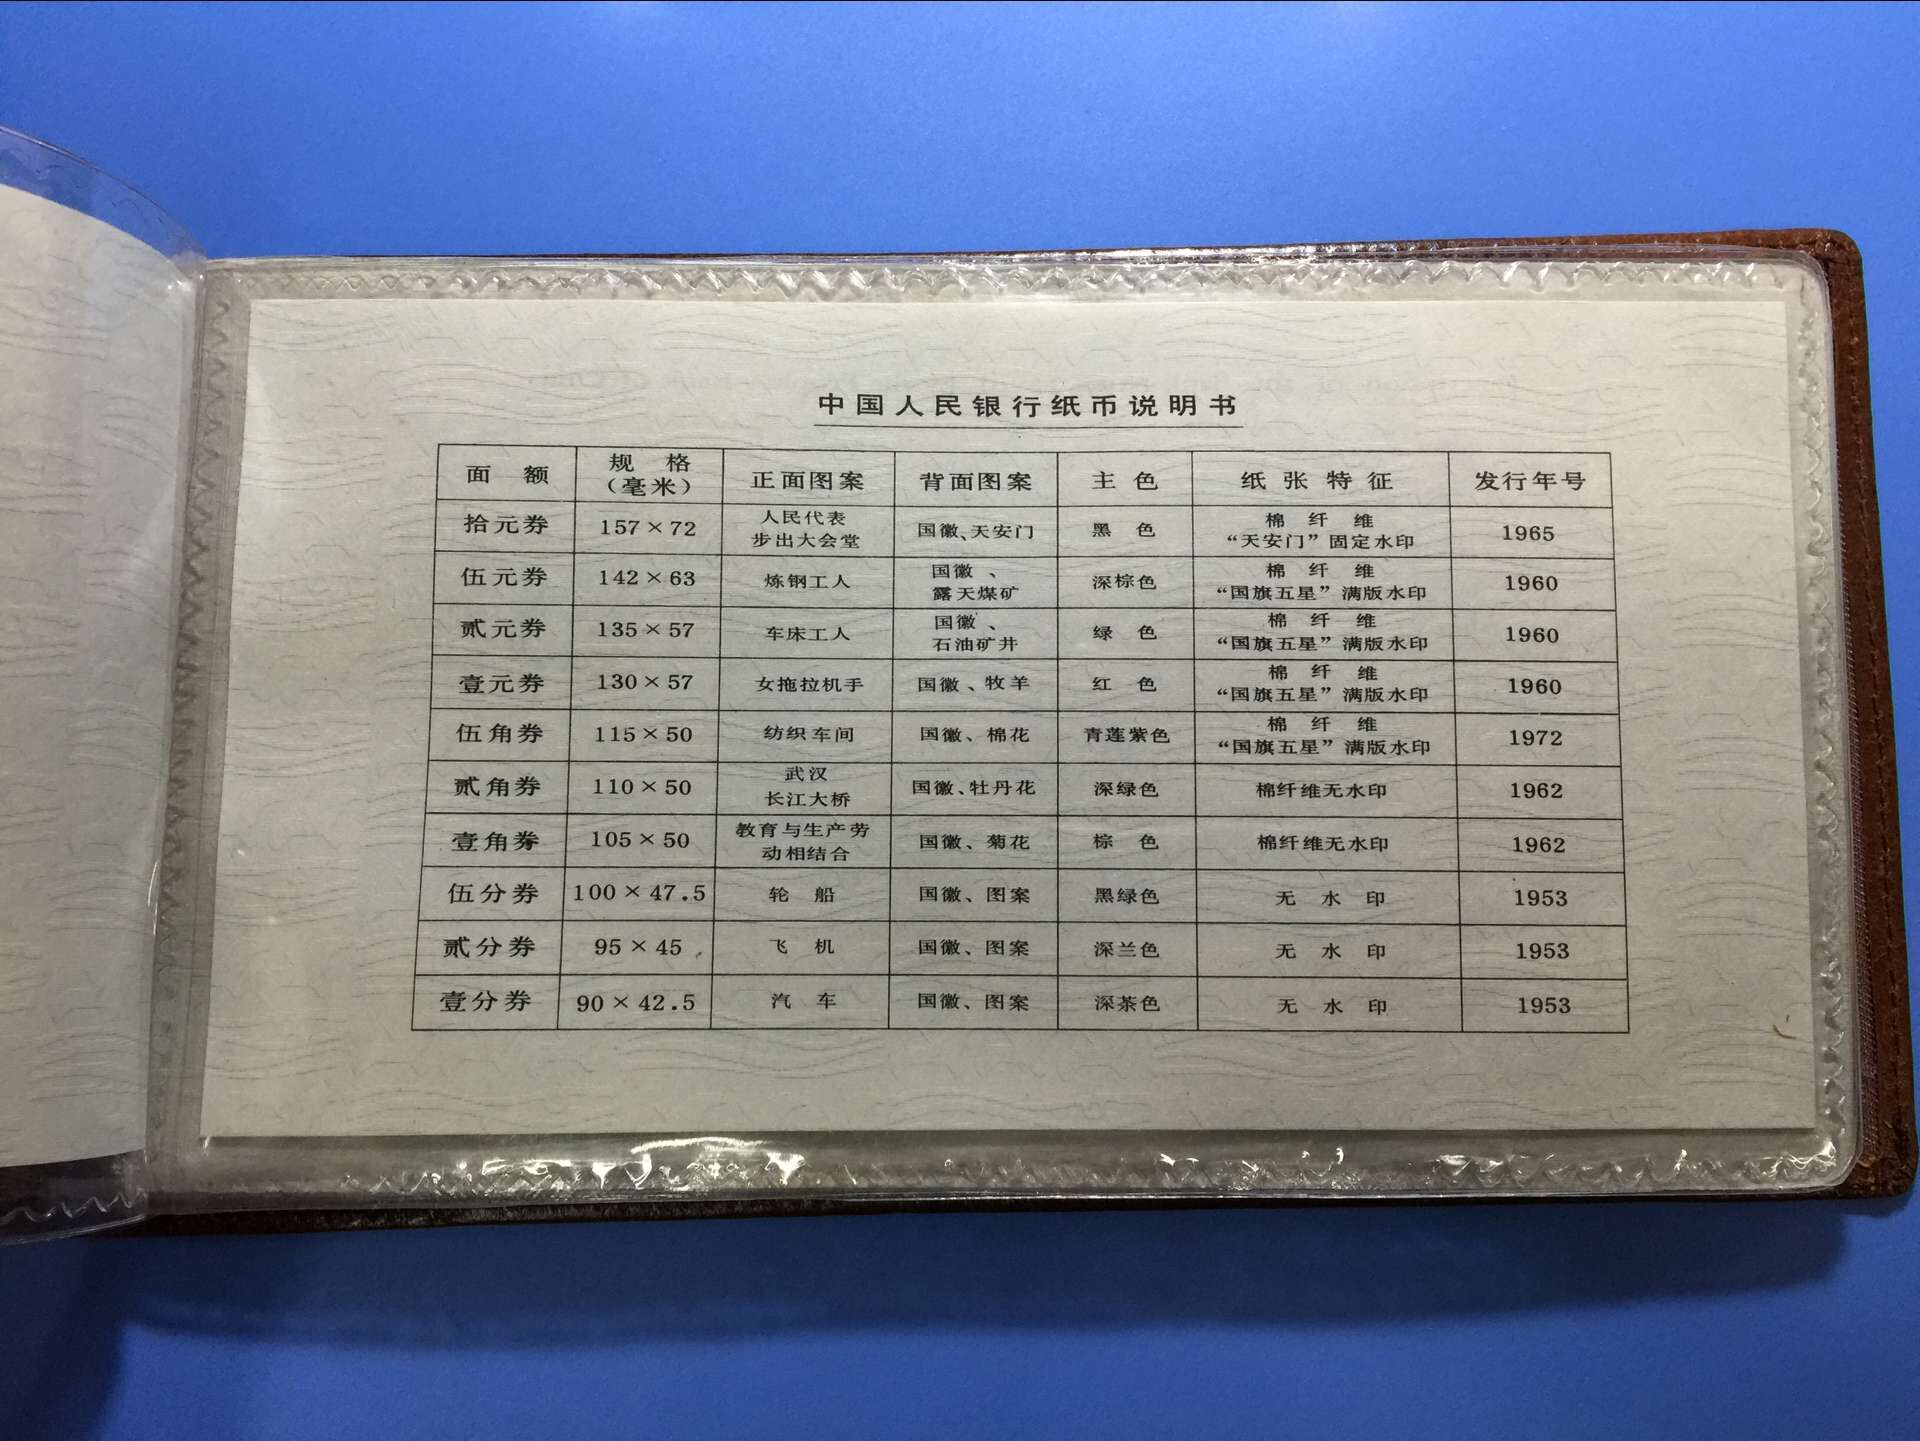 中国人民银行纸币说明书
面额 规格（毫米） 正面图案 背面图案 主色 纸张特征 发行年号
拾元券 157×72 人民代表步出大会堂 国徽、天安门 黑色 棉纤维“天安门”固定水印 1965
伍元券 142×63 炼钢工人 国徽、露天煤矿 深棕色 棉纤维“国旗五星”满版水印 1960
贰元券 135×57 车床工人 国徽、石油矿井 绿色 棉纤维“国旗五星”满版水印 1960
壹元券 130×57 女拖拉机手 国徽、牧羊 红色 棉纤维“国旗五星”满版水印 1960
伍角券 115×50 纺织车间 国徽、棉花 青莲紫色 棉纤维“国旗五星”满版水印 1972
贰角券 110×50 武汉长江大桥 国徽、牡丹花 深绿色 棉纤维无水印 1962
壹角券 105×50 教育与生产劳动相结合 国徽、菊花 棕色 棉纤维无水印 1962
伍分券 100×47.5 轮船 国徽、图案 黑绿色 无水印 1953
贰分券 95×45 飞机 国徽、图案 深兰色 无水印 1953
壹分券 90×42.5 汽车 国徽、图案 深茶色 无水印 1953